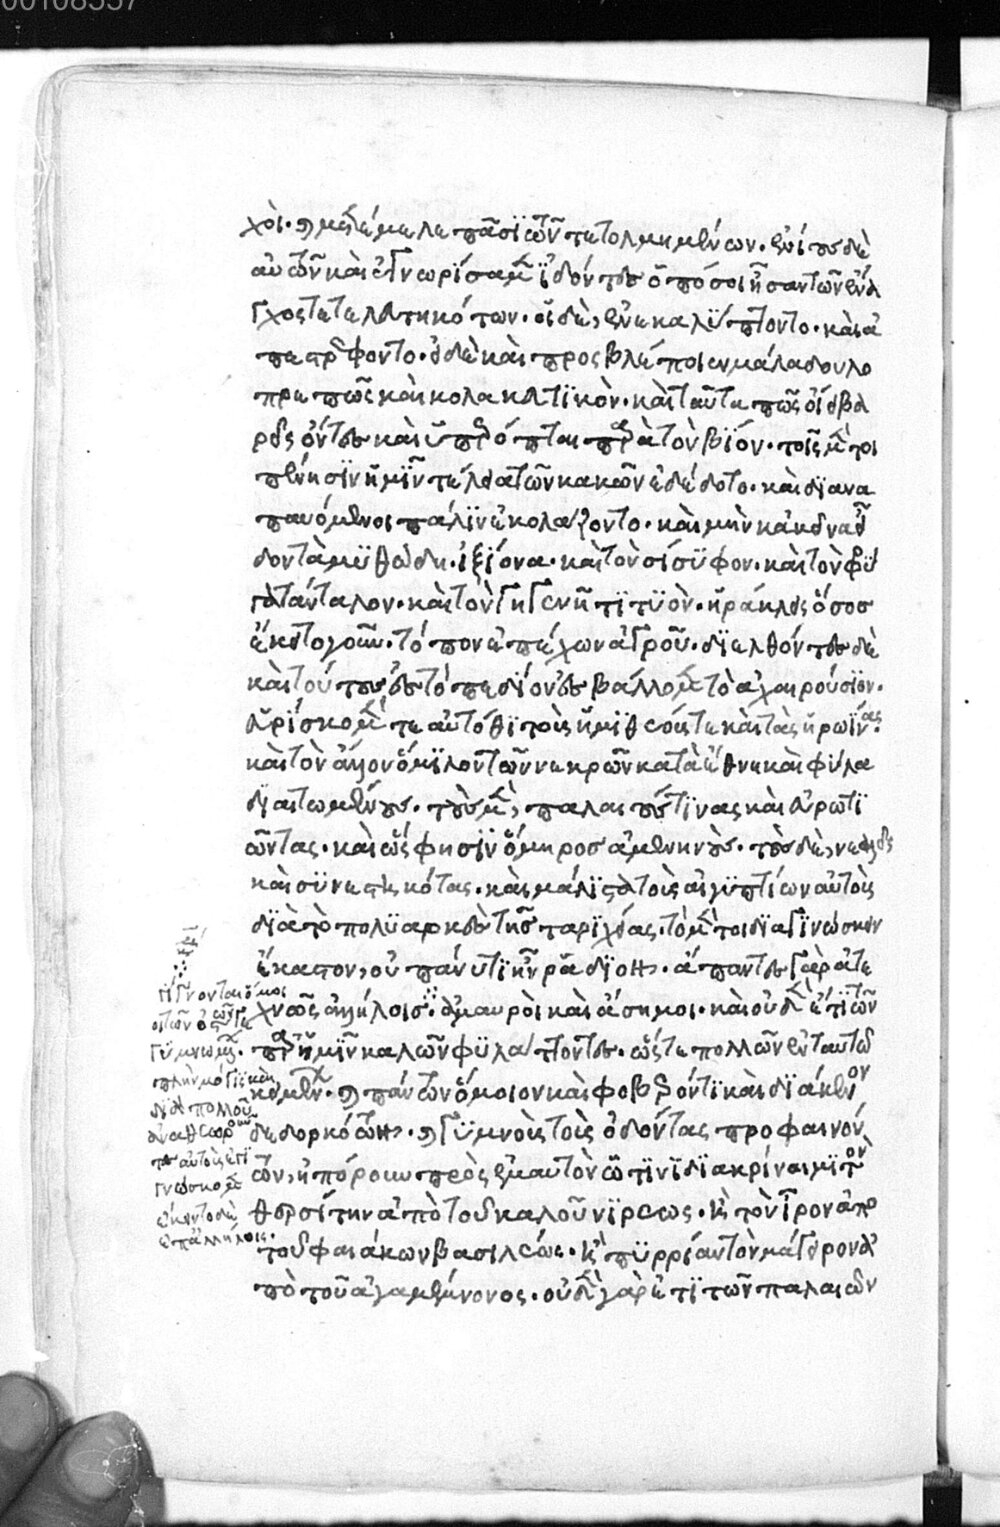 χοι· καὶ μετέμελε πᾶσϊ τῶν τετολμημένων. ἐνίους δὲ
αὐτῶν καὶ ἐγνωρίσαμεν ἰδόντες ὁπόσοι ἦσαν τῶν ἔνα
γχος τετελευτηκότων· οἱ δὲ, ἐνεκαλύπτοντο· καὶ ἀ
πεστρέφοντο· εἰ δὲ καὶ προσβλέποιεν μάλα δουλο
πρεπῶς καὶ κολακευτικόν· καὶ ταῦτα πῶς οἴει βα
ρεῖς ὄντες καὶ ὑπερόπται παρὰ τὸν βίον· τοῖς μέντοι
πένησιν ἡμϊντέλεια τῶν κακῶν ἐδέδοτο· καὶ διανα
παυόμενοι πάλιν ἐκολάζοντο· καὶ μὴν κἀκεῖνα εἶ
δον τὰ μυθώδη· ἰξίονα· καὶ τὸν σίσυφον· καὶ τὸν φρύ
γα τάνταλον· καὶ τὸν γηγενῆ τιτυὸν· ἡράκλεις ὅσος
ἔκειτο γοῦν· τόπον ἐπέχων ἀγροῦ· διελθόντες δὲ
καὶ τούτους ἐς τὸ πεδίον ἐσβάλλομεν τὸ ἀχαιρούσιον·
εὑρίσκομέν τε αὐτόθι τοὺς ἡμιθέους τε καὶ τὰς ἡρωΐνας·
καὶ τὸν ἄλλον ὅμιλον τῶν νεκρῶν κατὰ ἔθνη καὶ φῦλα
διαιτωμένους· τοὺς μὲν, παλαιούς τινας καὶ εὐρωτι
ῶντας· καὶ ὥς φησϊν ὅμηροσ ἀμενηνούς· τοὺς δὲ, νεαλεῖς
καὶ συνεστηκότας· καὶ μάλιστα τοὺς αἰγυπτίων αὐτοὺς
διὰ τὸ πολυαρκὲς τῆς ταριχείας· τὸ μέντοι διαγινώσκειν
ἕκαστον, οὐ πάνυ τι ἦν ῥᾴδιον· ἅπαντες γὰρ ἀτε
χνῶς ἀλλήλοις· ἀμαυροὶ καὶ ἄσημοι· καὶ οὐδὲν ἔτι τῶν
παρ' ἡμῖν καλῶν φυλάττοντες· ὥστε πολλῶν ἐν ταυτῷ
κειμένων· καὶ πάντων ὅμοιον καὶ φοβερόν τι καὶ διάκενον
δεδορκότων· καὶ γυμνοὺς τοὺς ὀδόντας προφαινόν
των, ἠπόρουν πρὸς ἐμαυτὸν ᾧτινι διακρίναιμι τὸν
θερσίτην ἀπὸ τοῦ καλοῦ νιρέως· καὶ τὸν ἶρον ἀπὸ
τοῦ φαιάκων βασιλέως· καὶ πυρρίαν τὸν μάγειρον ἀ
πὸ τοῦ ἀγαμέμνονος· οὐδὲν γὰρ ἔτι τῶν παλαιῶν
γίγνονται ὅμοι
οι τῶν ὀστῶν γε
γυμνωμένων·
πλὴν μόγις καὶ
διὰ πολλοῦ
ἀναθεωροῦν
τες αὐτοὺς ἐγι
γνώσκομεν
ἔκειντο δὲ
ἐπ' ἀλλήλοις·